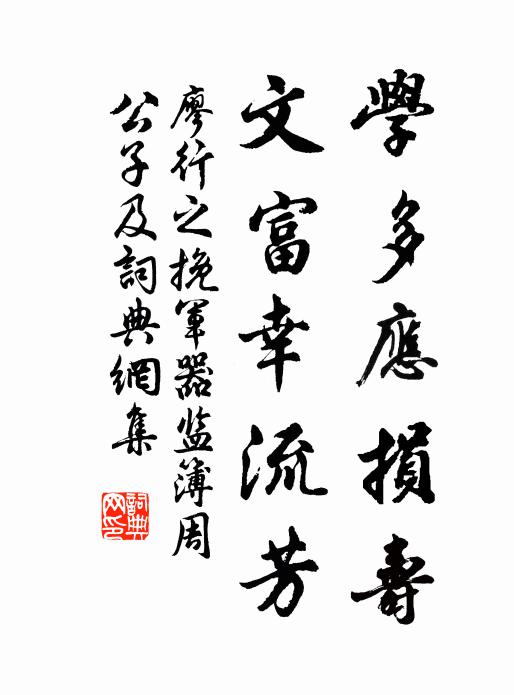 學多應損壽
文富幸流芳
廖行之挽軍器监簿周
公子及詞典網集
詞典网印